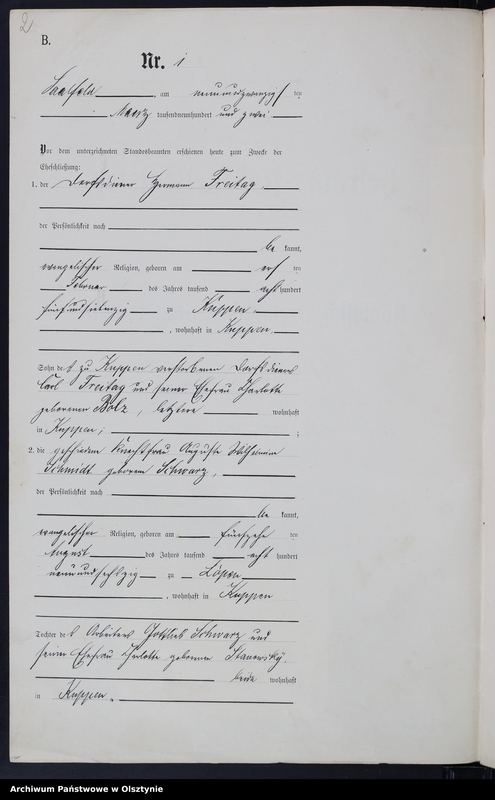 2
B.
Nr. 1
Saalfeld, am neunundzwanzigsten
März tausendneunhundert und zwei
Vor dem unterzeichneten Standesbeamten erschienen heute zum Zwecke der
Eheschließung:
1. der Dorfsdiener Hermann Freitag
der Persönlichkeit nach
be kannt,
evangelischer Religion, geboren am ten
Februar des Jahres tausend acht hundert
fünfundsiebenzig zu Kuppen
, wohnhaft in Kuppen,
Sohn des zu Kuppen verstorbenen Dorfsdieners
Carl Freitag und seiner Ehefrau Charlotte
geborenen Bolz, letztere wohnhaft
in Kuppen;
2. die geschiedene Knechtsfrau Auguste Wilhelmine
Schmidt geborene Schwarz,
der Persönlichkeit nach
be kannt,
evangelischer Religion, geboren am ten
August des Jahres tausend acht hundert
neunundsechszig zu Löpen
, wohnhaft in Kuppen
Tochter des Arbeiters Gottlieb Schwarz und
seiner Ehefrau Charlotte geborenen
beide wohnhaft
in Kuppen.
Archiwum Państwowe w Olsztynie